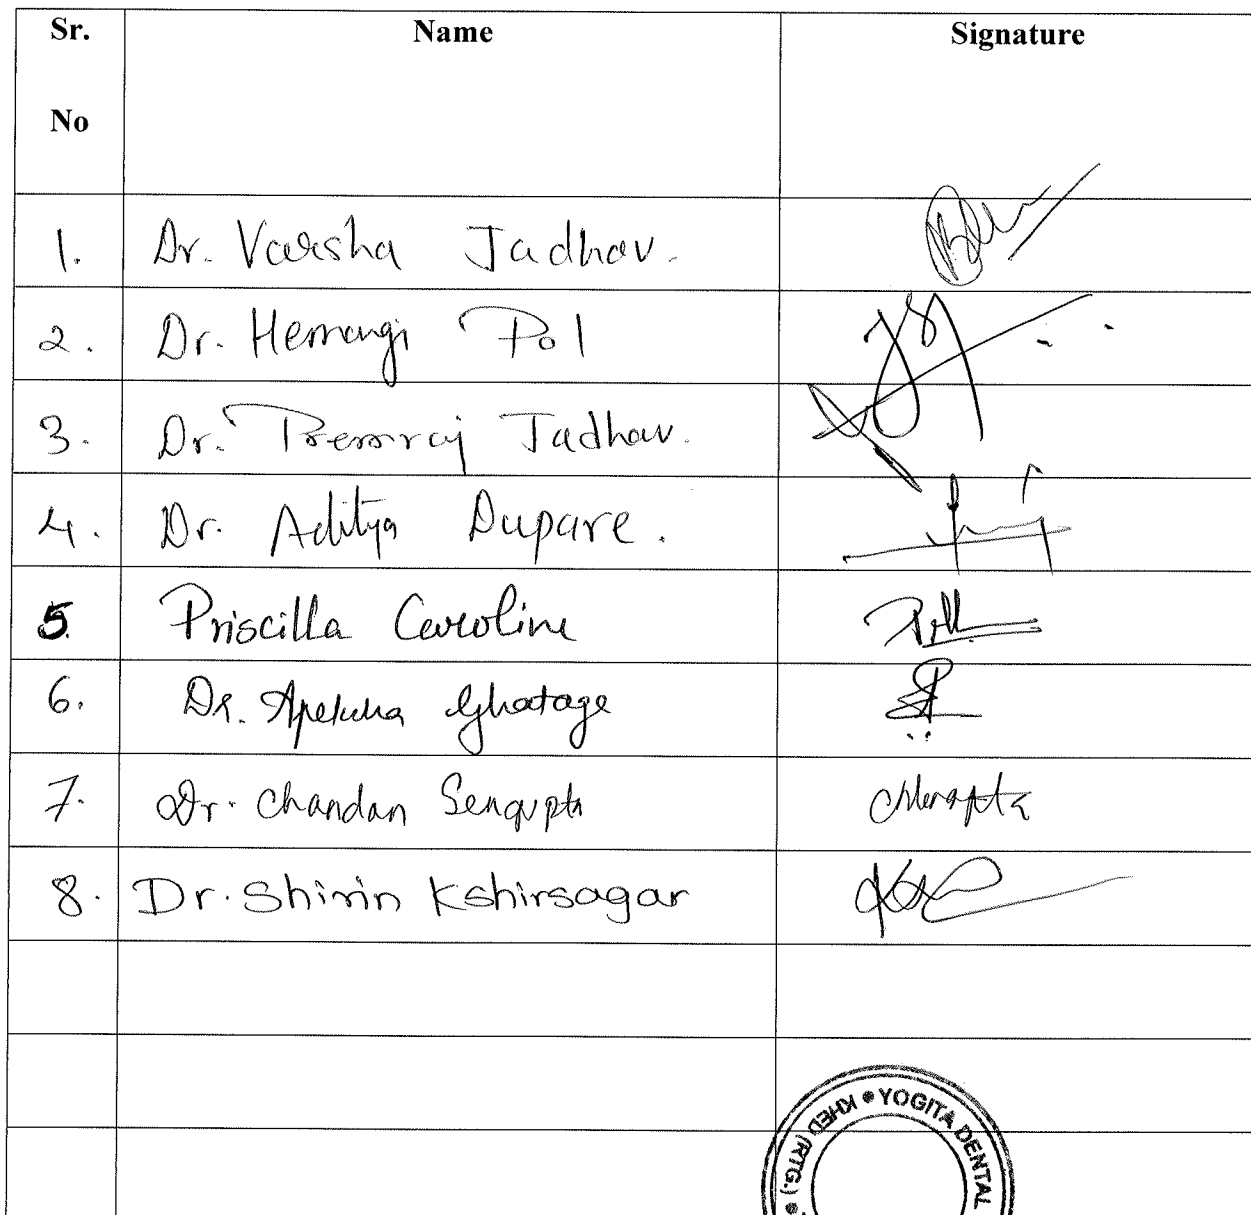 Sr. No Name Signature
1. Dr. Varsha Jadhav.
2. Dr. Hemangi Pol
3. Dr. Premraj Jadhav.
4. Dr. Aditya Dupare.
5. Priscilla Caroline
6. Dr. Apeksha Ghatage
7. Dr. Chandan Sengupta
8. Dr. Shirin Kshirsagar
KHED (RTG.) • YOGITA DENTAL